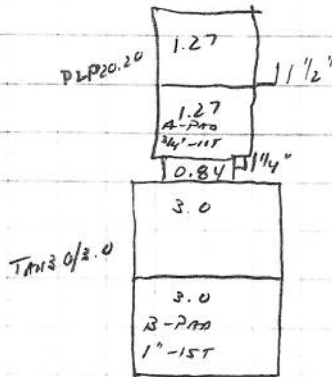 1.27
PLP20.20
1 1/2"
1.27
A-PAD
3/4"-15T
1/4"
0.84
3.0
TAN3.0/3.0
3.0
B-PAD
1"-15T